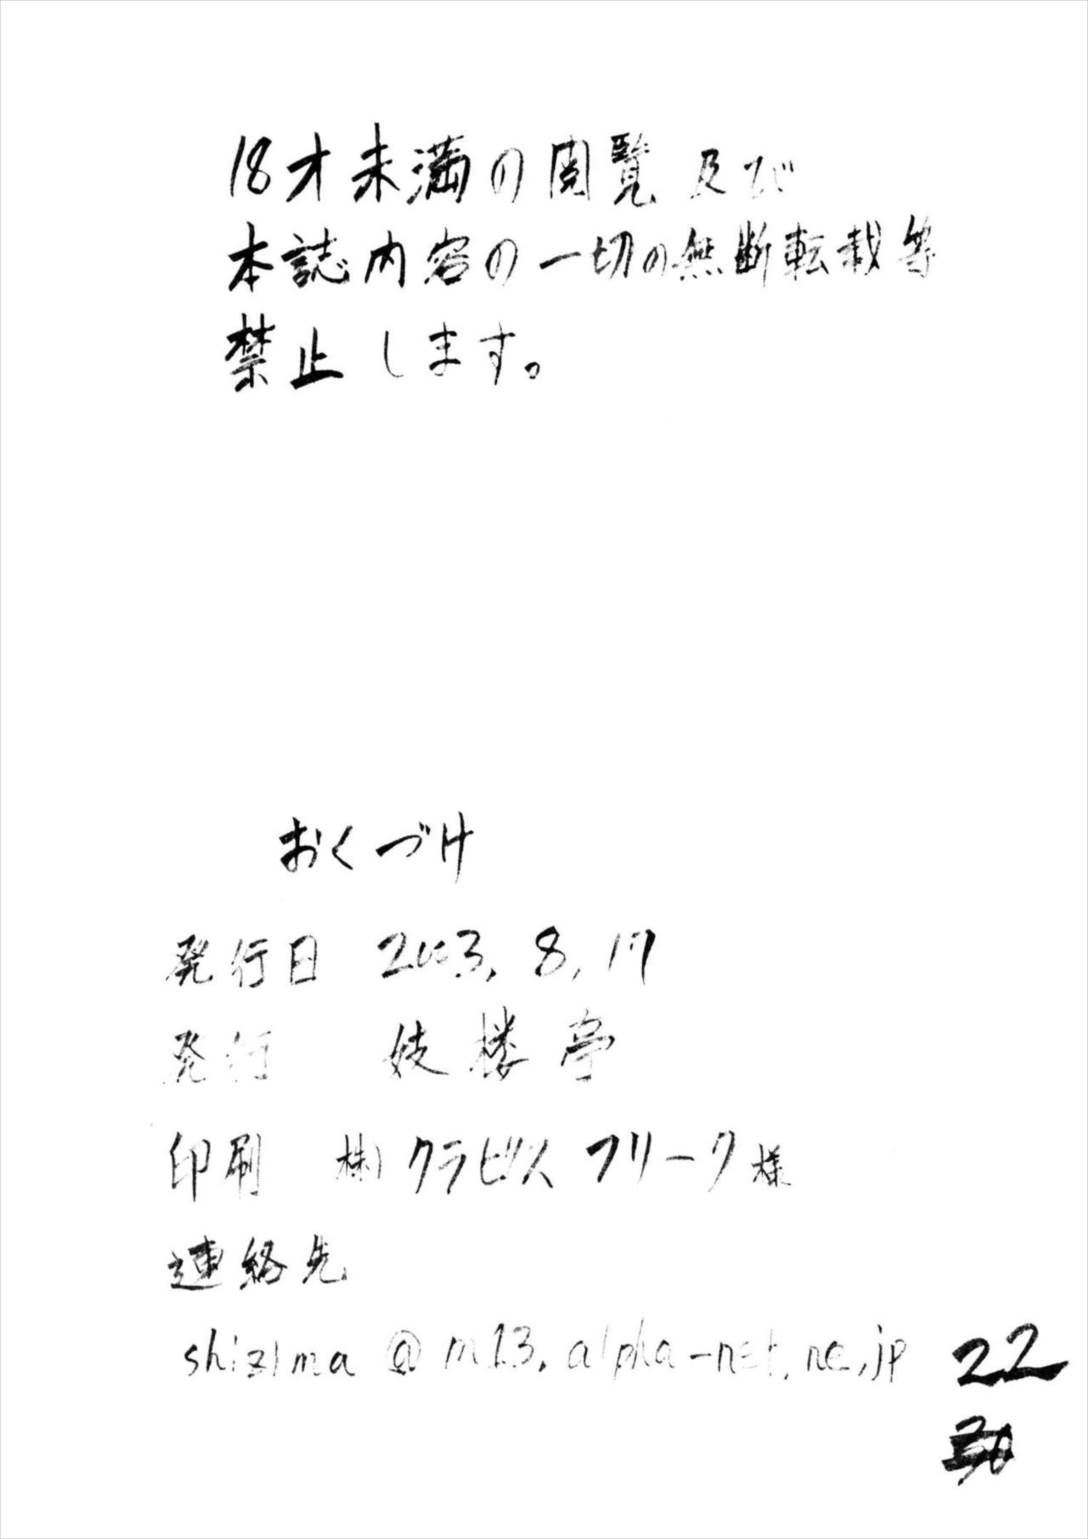 18才未満の閲覧及び
本誌内容の一切の無断転載等
禁止します。
おくづけ
発行日 2003.8.17
発行 妓楼亭
印刷 (株)クラビスフリーク様
連絡先
shizima@m13.alpha-net.ne.jp
22